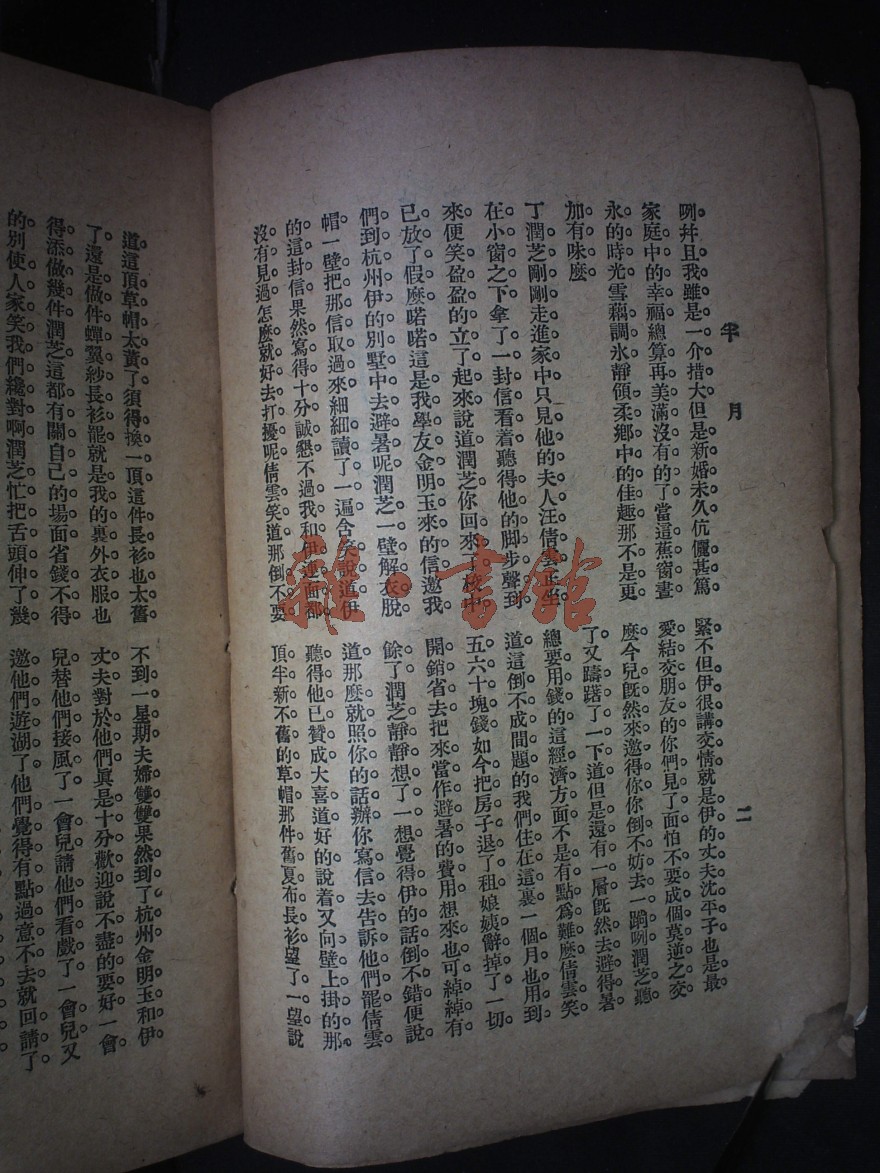 半月
二
咧幷且我雖是一介措大但是新婚未久伉儷甚篤
家庭中的幸福總算再美滿沒有的了當這蕉窗晝
永的時光雪藕調氷靜領柔鄉中的佳趣那不是更
加有味麼
丁潤芝剛剛走進家中只見他的夫人汪倩雲正坐
在小窗之下拿了一封信看着聽得他的脚步聲到
來便笑盈盈的立了起來說道潤芝你回來了校中
已放了假麼喏喏這是我學友金明玉來的信邀我
們到杭州伊的別墅中去避暑呢潤芝一壁解衣脫
帽一壁把那信取過來細細讀了一遍含笑說道伊
的這封信果然寫得十分誠懇不過我和伊連面都
沒有見過怎麼就好去打擾呢倩雲笑道那倒不要
緊不但伊很講交情就是伊的丈夫沈平子也是最
愛結交朋友的你們見了面怕不要成個莫逆之交
麼今兒旣然來邀得你你倒不妨去一蹋咧潤芝聽
了又躊躇了一下道但是還有一層旣然去避得暑
總要用錢的這經濟方面不是有點爲難麼倩雲笑
道這倒不成問題的我們住在這裏一個月也用到
五六十塊錢如今把房子退了租娘姨辭掉了一切
開銷省去把來當作避暑的費用想來也可綽綽有
餘了潤芝靜靜想了一想覺得伊的話倒不錯便說
道那麼就照你的話辦你寫信去告訴他們罷倩雲
聽得他已贊成大喜道好的說着又向壁上掛的那
頂半新不舊的草帽那件舊夏布長衫望了一望說
道這頂草帽太黃了須得換一頂這件長衫也太舊
了還是做件蟬翼紗長衫罷就是我的裏外衣服也
得添做幾件潤芝這都有關自己的場面省錢不得
的別使人家笑我們纔對啊潤芝忙把舌頭伸了幾
不到一星期夫婦雙雙果然到了杭州金明玉和伊
丈夫對於他們眞是十分歡迎說不盡的要好一會
兒替他們接風了一會兒請他們看戲了一會兒又
邀他們遊湖了他們覺得有點過意不去就回請了
雜·書館